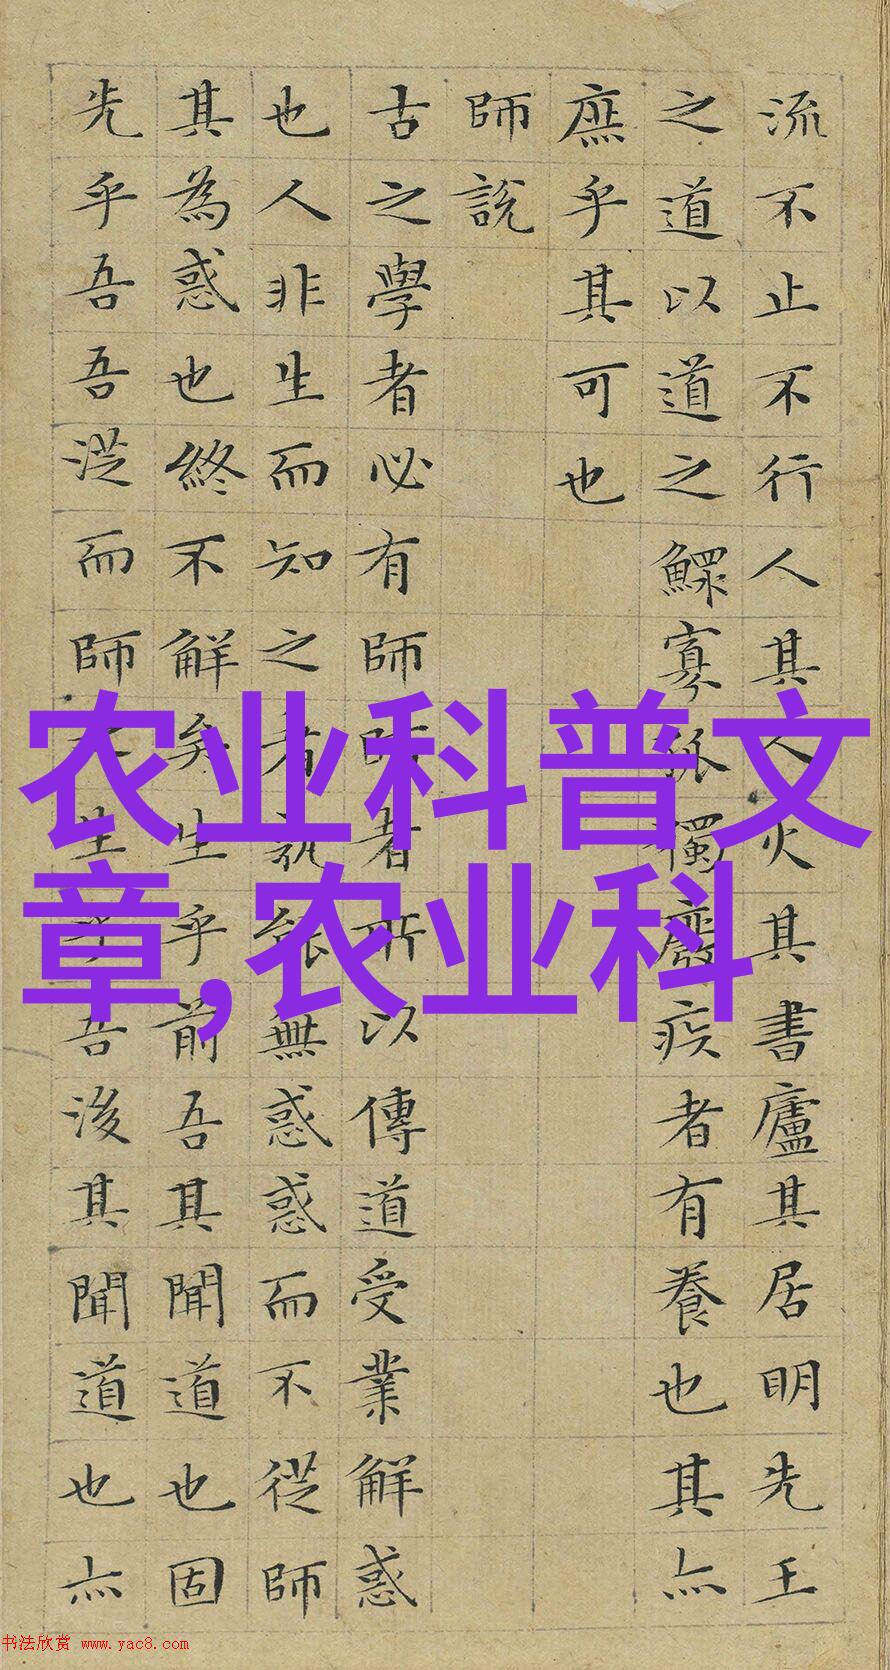 流不止不行人其人火其書廬其居明先王
之道以道之鰥寡孤獨廢疾者有養也其亦
庶乎其可也
師說
古之學者必有師師者所以傳道受業解惑
也人非生而知之者孰能無惑惑而不從師
其為惑也終不解矣生乎前吾其聞道也固
先乎吾吾從而師之生乎吾後其聞道也亦
农业科普文
章,农业科
书法欣赏 www.yac8.com